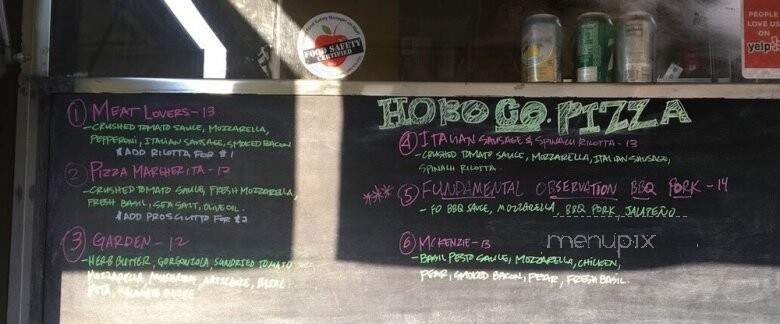 Food Safety Manager On Staff
FOOD SAFETY
CERTIFIED
PEOPLE
LOVE US
ON
yelp
HOBO CO. PIZZA
① MEAT LOVERS - 13
- CRUSHED TOMATO SAUCE, MOZZARELLA,
PEPPERONI, ITALIAN SAUSAGE, SMOKED BACON
* ADD RICOTTA FOR $1
② PIZZA MARGHERITA - 12
- CRUSHED TOMATO SAUCE, FRESH MOZZARELLA,
FRESH BASIL, SEA SALT, OLIVE OIL
* ADD PROSCIUTTO FOR $2
③ GARDEN - 12
- HERB BUTTER, GORGONZOLA, SUNDRIED TOMATO
MOZZARELLA, MUSHROOM, ARTICHOKE, BASIL
FETA,
④ ITALIAN SAUSAGE & SPINACH RICOTTA - 13
- CRUSHED TOMATO SAUCE, MOZZARELLA, ITALIAN SAUSAGE,
SPINACH RICOTTA.
*** ⑤ FUNDAMENTAL OBSERVATION BBQ PORK - 14
- FO BBQ SAUCE, MOZZARELLA, BBQ PORK, JALAPEÑO
⑥ MCKENZIE - 13
- BASIL PESTO SAUCE, MOZZARELLA, CHICKEN,
PEAR, SMOKED BACON, PEAR, FRESH BASIL.
menupix